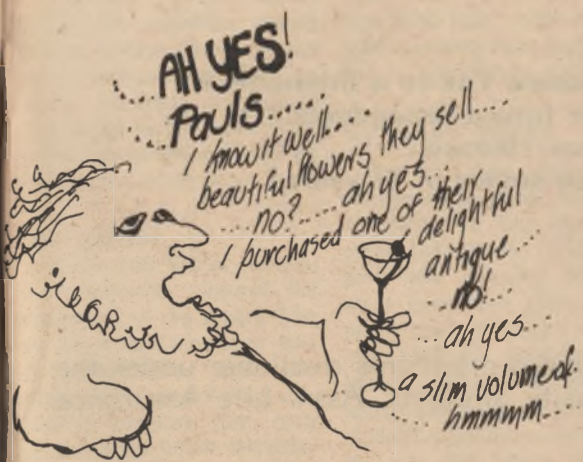 ..... AH YES!
..... Pauls.....
I know it well....
beautiful flowers they sell....
.....no?..... ah yes...
I purchased one of their
delightful
antique...
..no!
...ah yes....
a slim volume of.
.... hmmmm....